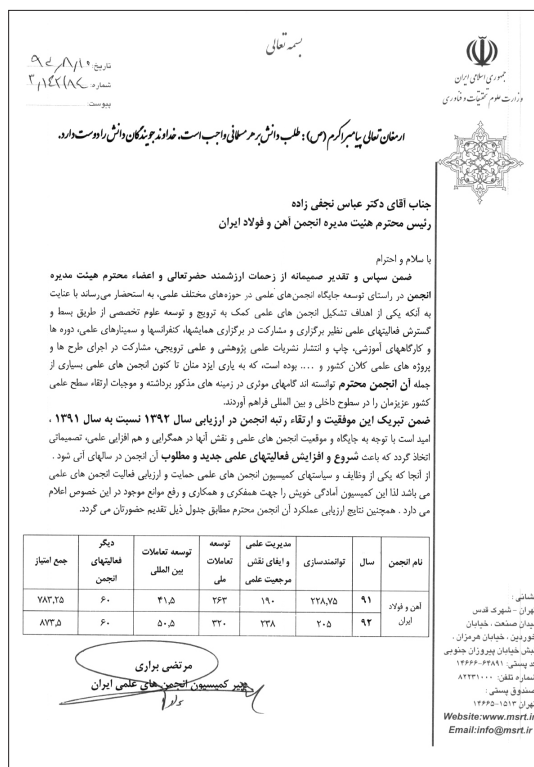 بسمه تعالی
جمهوری اسلامی ایران
وزارت علوم تحقیقات و فناوری
تاریخ:
شماره:
پیوست:
ارمغان تعالی پیامبر اکرم (ص): طلب دانش بر هر مسلمانی واجب است. خداوند جویندگان دانش را دوست دارد.
جناب آقای دکتر عباس نجفی زاده
رئیس محترم هئیت مدیره انجمن آهن و فولاد ایران
با سلام و احترام
ضمن سپاس و تقدیر صمیمانه از زحمات ارزشمند حضرتعالی و اعضاء محترم هیئت مدیره
انجمن در راستای توسعه جایگاه انجمن های علمی در حوزه‌های مختلف علمی، به استحضار می‌رساند با عنایت
به آنکه یکی از اهداف تشکیل انجمن های علمی کمک به ترویج و توسعه علوم تخصصی از طریق بسط و
گسترش فعالیتهای علمی نظیر برگزاری و مشارکت در برگزاری همایشها، کنفرانسها و سمینارهای علمی، دوره ها
و کارگاههای آموزشی، چاپ و انتشار نشریات علمی پژوهشی و علمی ترویجی، مشارکت در اجرای طرح ها و
پروژه های علمی کلان کشور و .... بوده است، که به یاری ایزد منان تا کنون انجمن های علمی بسیاری از
جمله آن انجمن محترم توانسته اند گامهای موثری در زمینه های مذکور برداشته و موجبات ارتقاء سطح علمی
کشور عزیزمان را در سطوح داخلی و بین المللی فراهم آوردند.
ضمن تبریک این موفقیت و ارتقاء رتبه انجمن در ارزیابی سال ۱۳۹۲ نسبت به سال ۱۳۹۱ ،
امید است با توجه به جایگاه و موقعیت انجمن های علمی و نقش آنها در همگرایی و هم افزایی علمی، تصمیماتی
اتخاذ گردد که باعث شروع و افزایش فعالیتهای علمی جدید و مطلوب آن انجمن در سالهای آتی شود .
از آنجا که یکی از وظایف و سیاستهای کمیسیون انجمن های علمی حمایت و ارزیابی فعالیت انجمن های علمی
می باشد لذا این کمیسیون آمادگی خویش را جهت همفکری و همکاری و رفع موانع موجود در این خصوص اعلام
می دارد . همچنین نتایج ارزیابی عملکرد آن انجمن محترم مطابق جدول ذیل تقدیم حضورتان می گردد.
نام انجمن سال توانمندسازی مدیریت علمی و ایفای نقش مرجعیت علمی توسعه تعاملات ملی توسعه تعاملات بین المللی دیگر فعالیتهای انجمن جمع امتیاز
آهن و فولاد ایران ۹۱ ۲۲۸,۷۵ ۱۹۰ ۲۶۳ ۴۱,۵ ۶۰ ۷۸۳,۲۵
۹۲ ۲۰۵ ۲۳۸ ۳۲۰ ۵۰,۵ ۶۰ ۸۷۳,۵
مرتضی براری
دبیر کمیسیون انجمن های علمی ایران
نشانی :
تهران - شهرک قدس
میدان صنعت ، خیابان
خوردین ، خیابان هرمزان ،
نبش خیابان پیروزان جنوبی
کد پستی: ۶۴۸۹۱-۱۴۶۶۶
شماره تلفن: ۸۲۲۳۱۰۰۰
صندوق پستی :
تهران ۱۵۱۳-۱۴۶۶۵
Website:www.msrt.ir
Email:info@msrt.ir